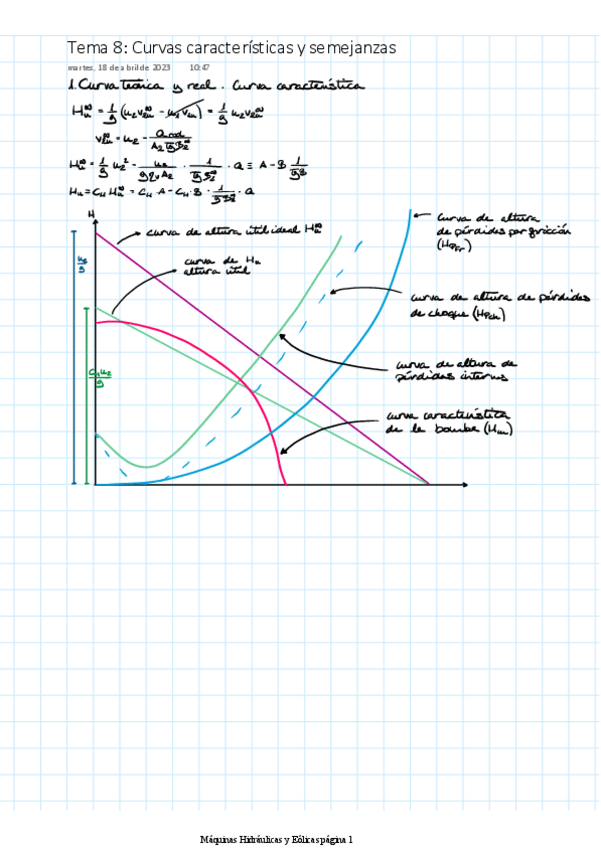 Tema 8: Curvas características y semejanzas
martes, 18 de abril de 2023 10:47
1. Curva teórica y real. Curva característica
H_u^∞ = 1/g (u₂v₂u^∞ - u₁v₁u) = 1/g u₂v₂u^∞
H_u = C_H H_u^∞ = C_H A - C_H B ·
H
curva de altura útil ideal H_u^∞
curva de H_u
altura útil
curva de altura
de pérdidas por fricción
(H_Pfr)
curva de altura de pérdidas
de choque (H_Pch)
curva de altura de
pérdidas internas
curva característica
de la bomba (H_m)
Máquinas Hidráulicas y Eólicas página 1